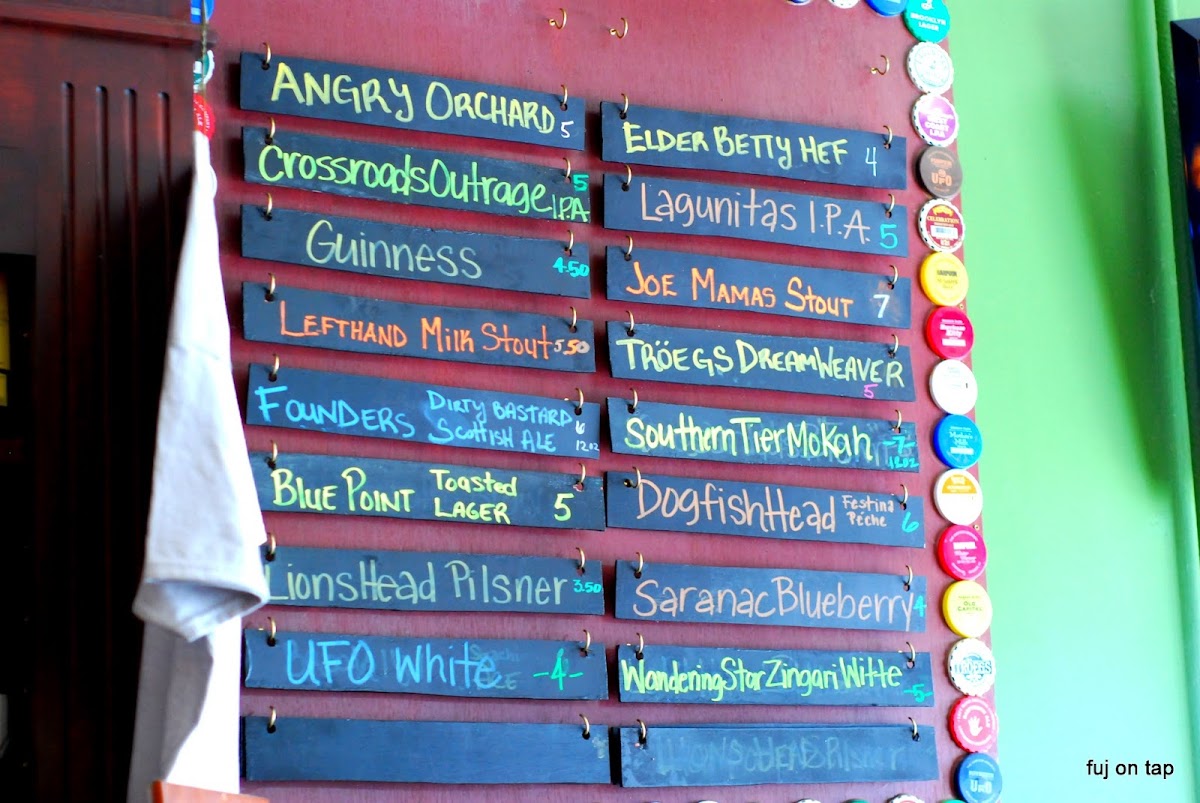 ANGRY ORCHARD 5
CrossroadsOutrage 5
I.P.A
Guinness 4.50
LEFTHAND Milk Stout 5.50
FOUNDERS DIRTY BASTARD 6
SCOTTISH ALE 12oz
BLUE POINT Toasted
LAGER 5
LIONSHEAD PILSNER 3.50
UFO White -4-
ELDER BETTY HEF 4
Lagunitas I.P.A. 5
JOE MAMAS STOUT 7
TRÖEGS DREAMWEAVER
5
Southern Tier Mokah -7-
12oz
DogfishHead Festina
Pêche 6
Saranac Blueberry 4
Wandering Star Zingari Witte -5-
BROOKLYN
LAGER
WEST
COAST
I.P.A.
UFO
CELEBRATION
fuj on tap